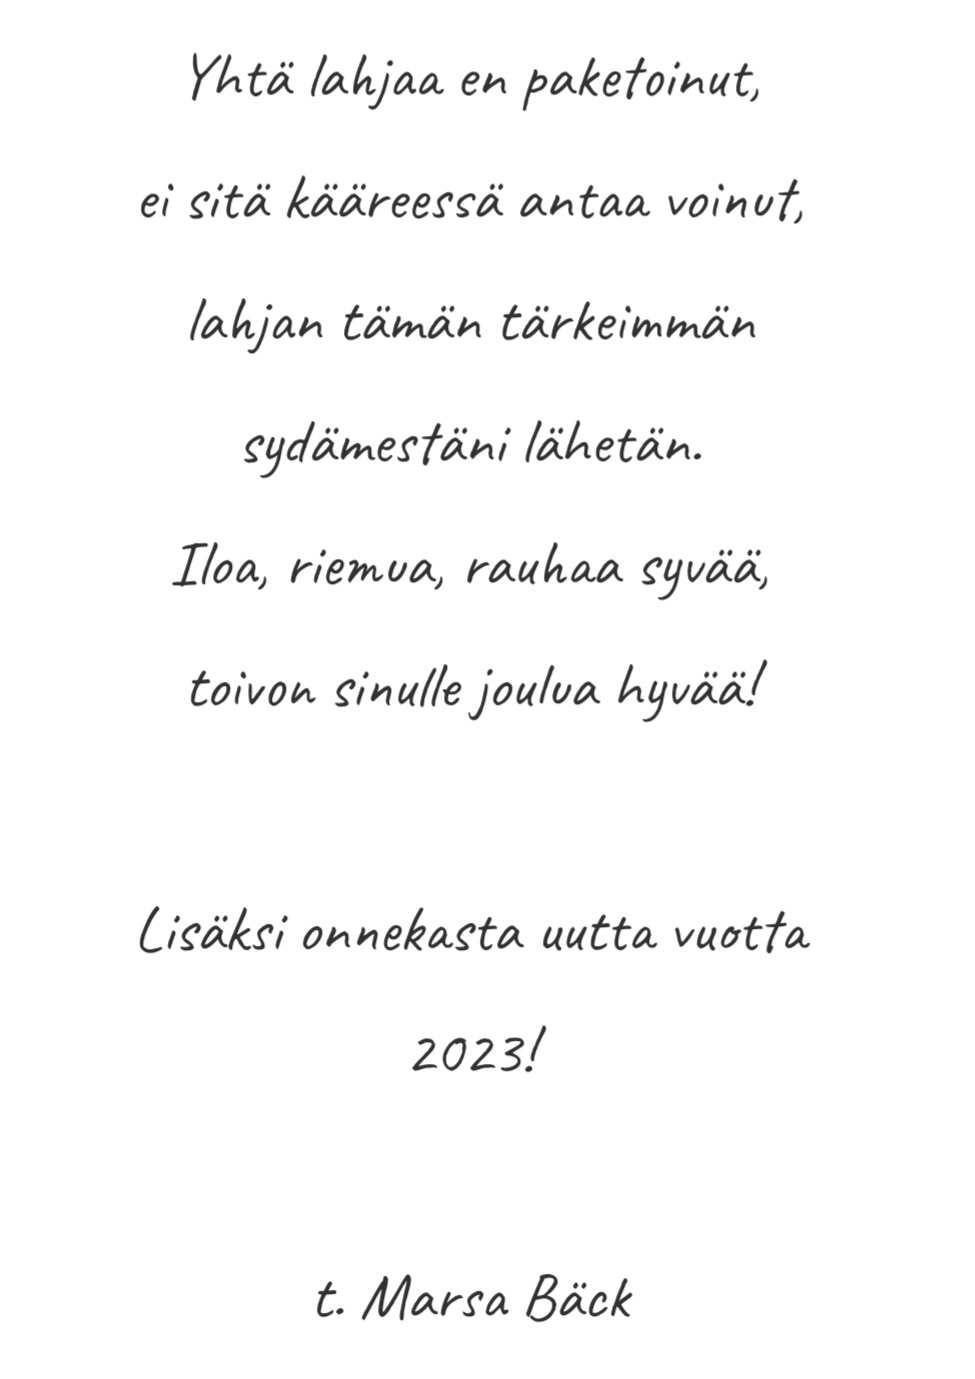 Yhtä lahjaa en paketoinut,
ei sitä kääreessä antaa voinut,
lahjan tämän tärkeimmän
sydämestäni lähetän.
Iloa, riemua, rauhaa syvää,
toivon sinulle joulua hyvää!
Lisäksi onnekasta uutta vuotta
2023!
t. Marsa Bäck